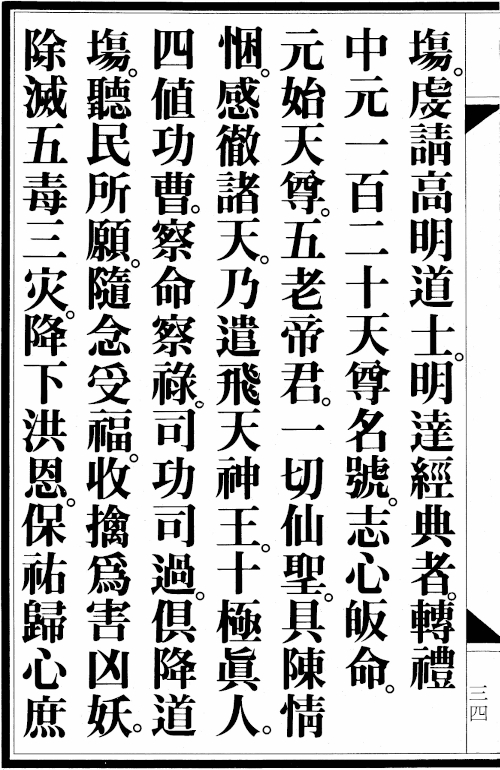 塲。虔請高明道士。明達經典者。轉禮
中元一百二十天尊名號。志心皈命。
元始天尊。五老帝君。一切仙聖。具陳情
悃。感徹諸天。乃遣飛天神王。十極眞人。
四値功曹。察命察祿。司功司過。俱降道
塲。聽民所願。隨念受福。收擒爲害凶妖。
除滅五毒三灾。降下洪恩。保祐歸心庶
三四